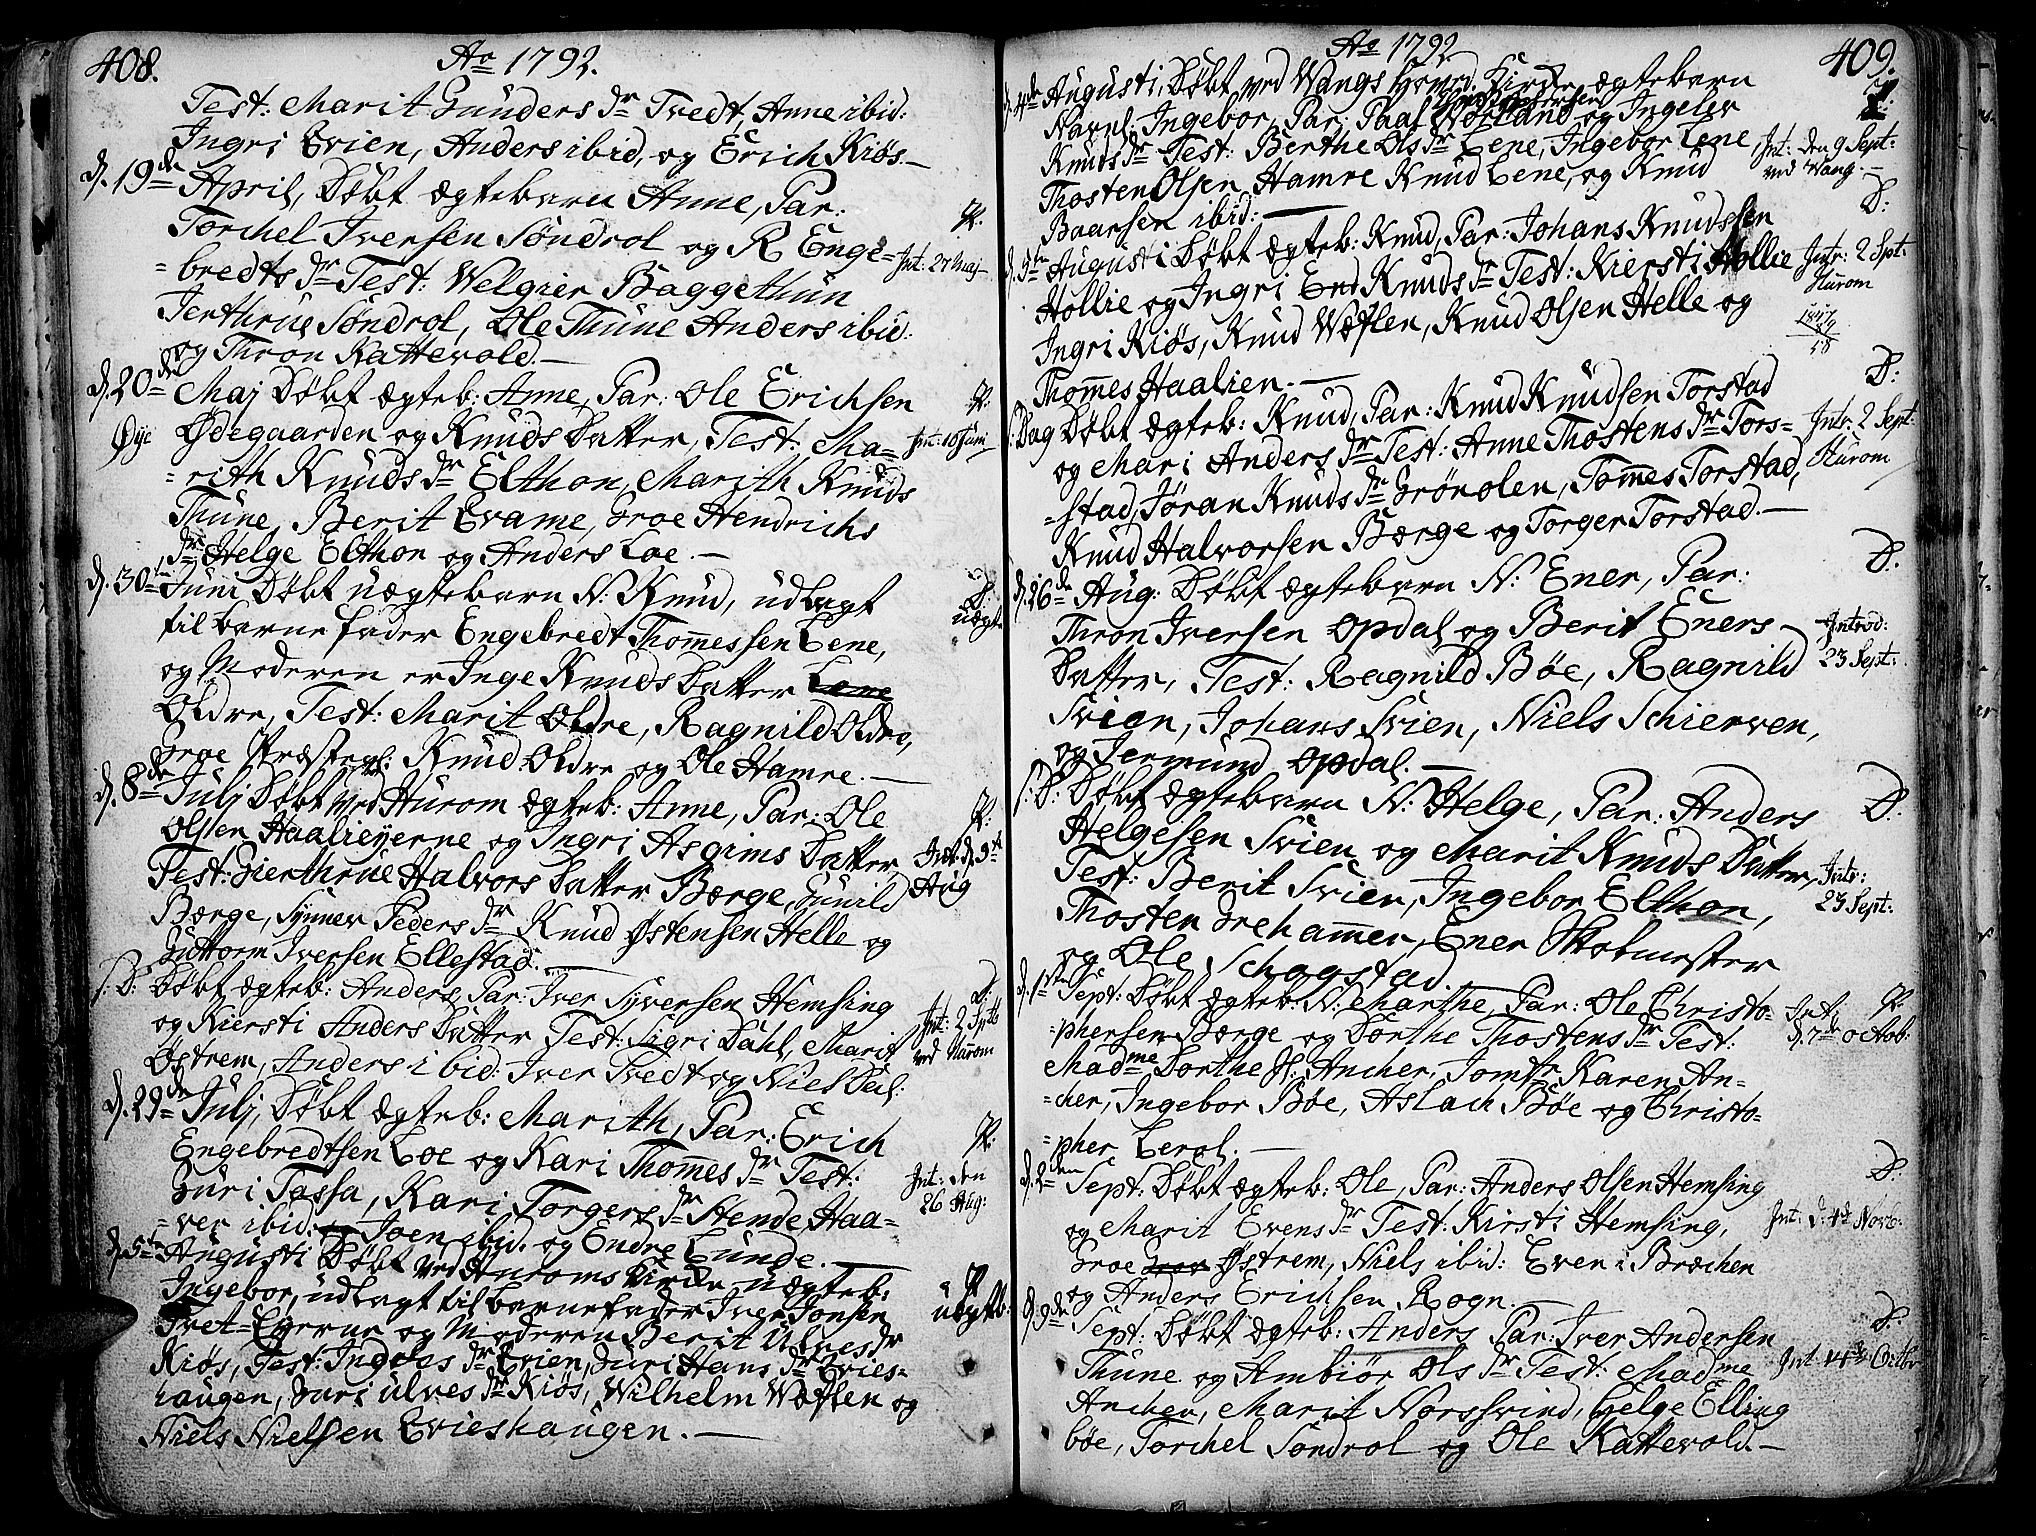 408.
Ao 1792.
Test: Marit Gunders Dr Tvedt, Anne ibid:
Ingri Qvien, Anders ibid, og Erich Kiøs. —
d. 19de April, Døbt ægtebarn Anne, Par:
Torchel Iversen Søndrol og R Enge=
=bredts Dr Test: Welgier Baggethun
Jerthrue Søndrol, Ole Thune Anders ibid:
og Thron Kattevold. —
Int: 27 Maj
d. 20de Maj Døbt ægteb: Anne, Par: Ole Erichsen
Øye
Ødegaarden og Knuds Datter, Test: Ma=
=rith Knuds Dr Elthon, Marith Knuds
Thune, Berit Qvame, Groe Hendrichs
Dr Helge Elthon og Anders Loe. —
Int: 10 Juni
d. 30te Juni Døbt uægtebarn N: Knud, udlagt
til barnefader Engebredt Thomessen Lene,
og Moderen er Inge Knuds Datter Lene
Oldre, Test: Marit Oldre, Ragnild Oldre,
Groe Præstegl: Knud Oldre og Ole Hamre. —
D:
uægt.
d. 8de Julj Døbt ved Hurom ægteb: Anne, Par: Ole
Olsen Haalieyerne og Ingri Asgrims Datter
Test: Gierthrue Halvors Datter Børge, Gunild
Børge, Synnev Peders Dr Knud Østensen Helle og
Guttorm Iversen Ellestad. —
Int: d. 9de
Aug
s: D: Døbt ægteb: Anders Par: Iver Syversen Hemsing
og Kiersti Anders Datter Test: Sigri Dahl, Marit
Østrem, Anders ibid: Iver Tvedt og Niel Dal:
D:
Int: 2 Septb
ved Hurom
d. 29de Julj, Døbt ægteb: Marith, Par: Erich
Engebredtsen Loe og Kari Thomes Dr Test:
Guri Tassa, Kari Torgers Dr Stende, Haa=
=ver ibid: og Joen ibid. og Endre Lunde. —
Int: den
26 Aug:
d. 5te Augusti Døbt ved Huroms Kirke uægteb:
Ingebor, udlagt til barnefader Iver Jonsen
Tvet=Egerne og Moderen Berit Ulves Dr
Kiøs, Test: Ingebor Dr Qvien, Guri Hans Dr Qvies=
haugen, Guri Ulves Dr Kiøs, Wilhelm Wæflen og
Niels Nielsen Qvieshaugen. —
uægteb:
409.
Ao 1792
d. 4de Augusti, Døbt ved Wangs Hoved Kirke ægtebarn
Navnl. Ingebor, Par: Paal og Ingeler
Knuds Dr Test: Berthe Ols Dr Lene, Ingebor Lene,
Thosten Olsen Hamre Knud Lene, og Knud
Baarsen ibid: —
Int: den 9 Sept:
ved Wang. —
Augusti Døbt ægteb: Knud, Par: Johans Knudssen
Hollie og Ingri End Knuds Dr Test: Kiersti Hollie
Ingri Kiøs, Knud Wæflen, Knud Olsen Helle og
Thomes Haalien. —
D:
Intr: 2 Spt:
Hurom
s: Dag Døbt ægteb: Knud, Par: Knud Knudsen Torstad
og Mari Anders Dr Test: Anne Thostens Dr Tors=
=stad, Jøran Knuds Dr Grønolen, Tomes Torstad,
Knud Halvorsen Børge og Torger Torstad. —
D:
Intr: 2 Sept:
Hurom
d. 26de Aug: Døbt ægtebarn N: Ener, Par:
Thron Iversen Opdal og Berit Eners
Datter, Test: Ragnild Bøe, Ragnild
Svien, Johans Svien, Niels Schierven,
og Jermund Opdal. —
D.
Introd:
23 Sept:
s: D: Døbt ægtebarn N: Helge, Par: Anders
Helgesen Svien og Marit Knuds Datter,
Test: Berit Svien, Ingebor Elthon,
Thosten Grehamer, Ener Skolmester
og Ole Schogstad.
D:
Intr:
23 Sept:
d. 1ste Sept: Døbt ægteb: N: Marthe, Par: Ole Christo=
=phersen Børge og Dorthe Thostens Dr Test:
Madme Dorthe H: Ancher, Jomfr Karen An=
=cher, Ingebor Bøe, Aslach Bøe og Christo=
=pher Lerol. —
Int:
d. 7de Octob:
d. 2den Sept: Døbt ægteb: Ole, Par: Anders Olsen Hemsing
og Marit Evens Dr Test: Kirsti Hemsing,
Groe Østrem, Niels ibid: Even i Brøchen
og Anders Erichsen Rogn. —
D.
Int: d. 4de Novb:
d. 9de Sept: Døbt ægteb: Anders Par: Iver Andersen
Thune og Ambiør Ols Dr Test: Madme
Ancher, Marit Norssvind, Helge Elling
bøe, Torchel Søndrol og Ole Kattevold. —
D.
Int: 14de Octbr